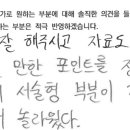 가로 원하는 부분에 대해 솔직한 의견을 들
하는 부분은 적극 반영하겠습니다.
잘 해주시고 자료도
만한 포인트를 정
서술형 부분이
놀라웠다.